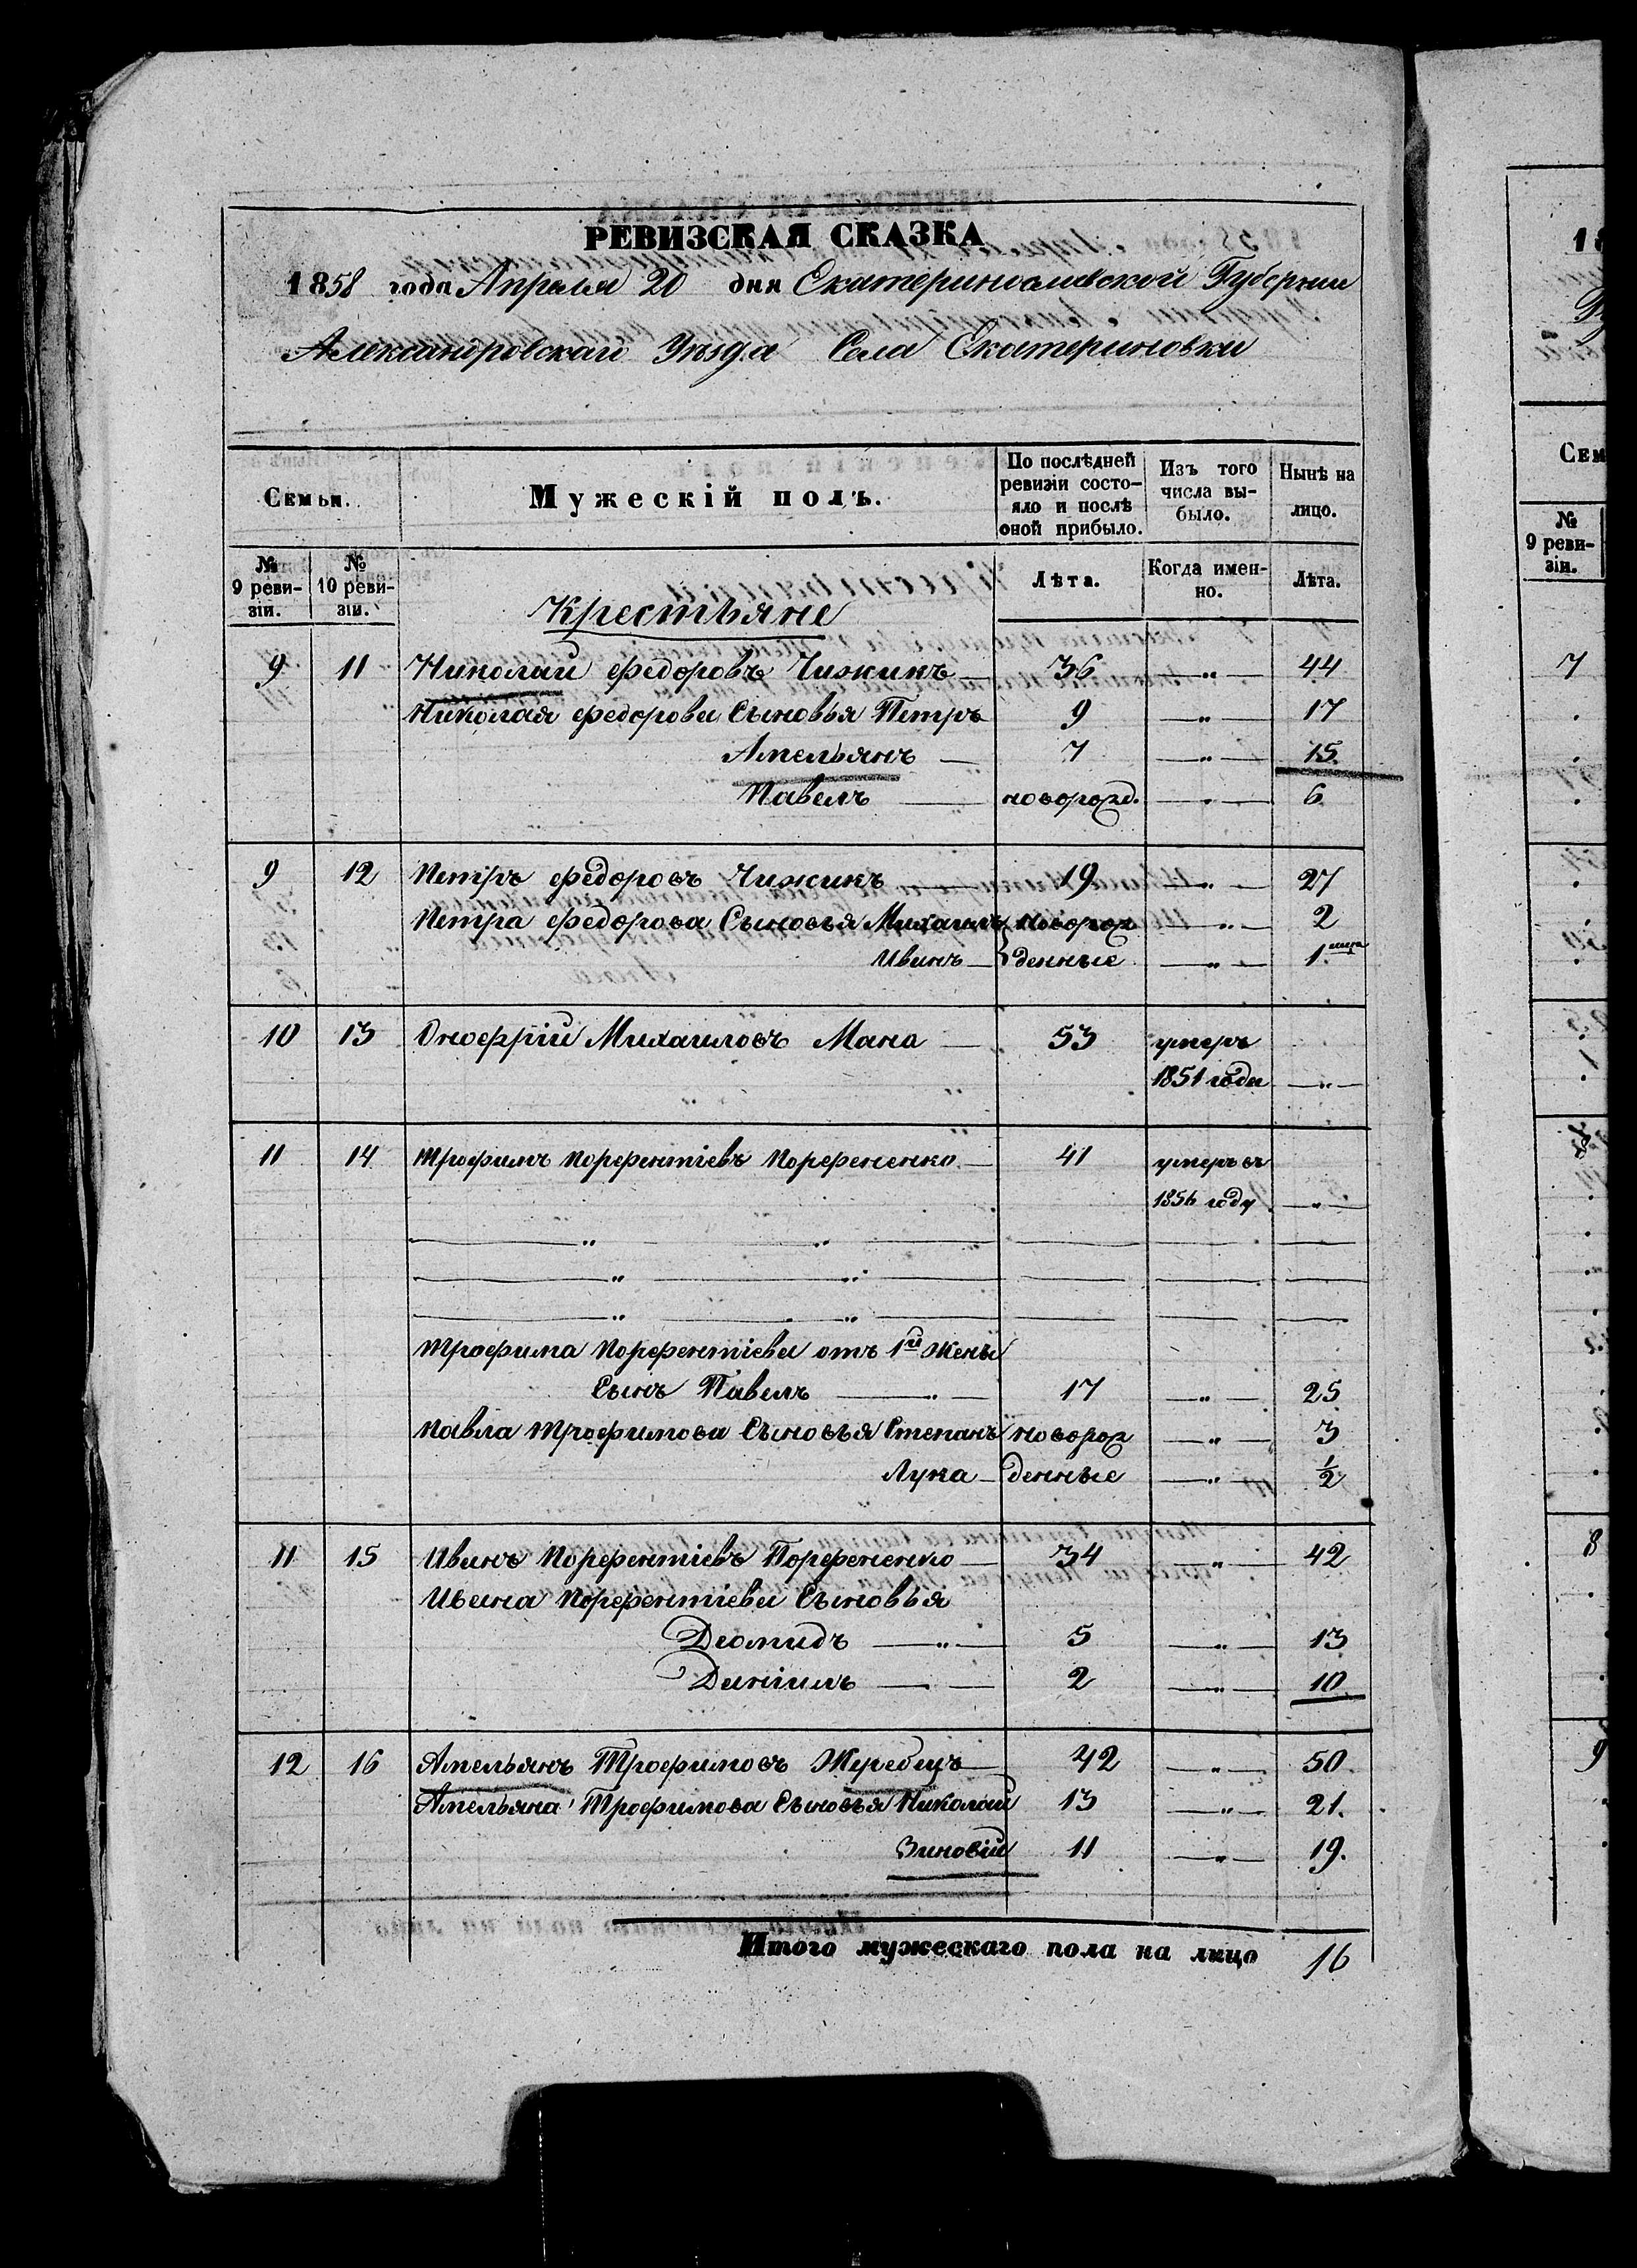 РЕВИЗСКАЯ СКАЗКА
1858 года Апреля 20 дня Екатеринославской Губернии
Александровскаго Уѣзда Села Екатериновки
Семьи. Мужескій полъ. По послѣдней ревизіи состояло и послѣ оной прибыло. Изъ того числа выбыло. Нынѣ на лицо.
№ 9 ревизіи. № 10 ревизіи. Лѣта. Когда именно. Лѣта.
Крестьяне
9 11 Николай Федоровъ Чижикъ — 36 — „ — 44
Николая Федорова Сыновья Петръ 9 — „ — 17
Амельянъ — 7 — „ — 15.
Павелъ — новорожд. — „ — 6
9 12 Петръ Федоровъ Чижикъ — 19 — „ — 27
Петра Федорова Сыновья Михаилъ новорож — „ — 2
Иванъ — денные — „ — 1.
10 13 Онофрій Михаиловъ Мана — 53 умеръ
1851 года — „ —
11 14 Трофимъ Порфентіевъ Порфененко — 41 умеръ въ
1856 году — „ —
Трофима Порфентіева отъ 1й Жены
Сынъ Павелъ — 17 — „ — 25
Павла Трофимова Сыновья Степанъ новорож — „ — 3
Лука — денные — „ — ½
11 15 Иванъ Порфентіевъ Порфененко — 34 — „ — 42
Ивана Порфентіева Сыновья
Деомидъ — „ — 5 — „ — 13
Даніилъ — 2 — „ — 10
12 16 Амельянъ Трофимовъ Жеребецъ — 42 — „ — 50
Амельяна Трофимова Сыновья Николай 13 — „ — 21.
Зиновій 11 — „ — 19.
Итого мужескаго пола на лицо 16
18
Сем
№ 9 ревизіи.
7
8
9